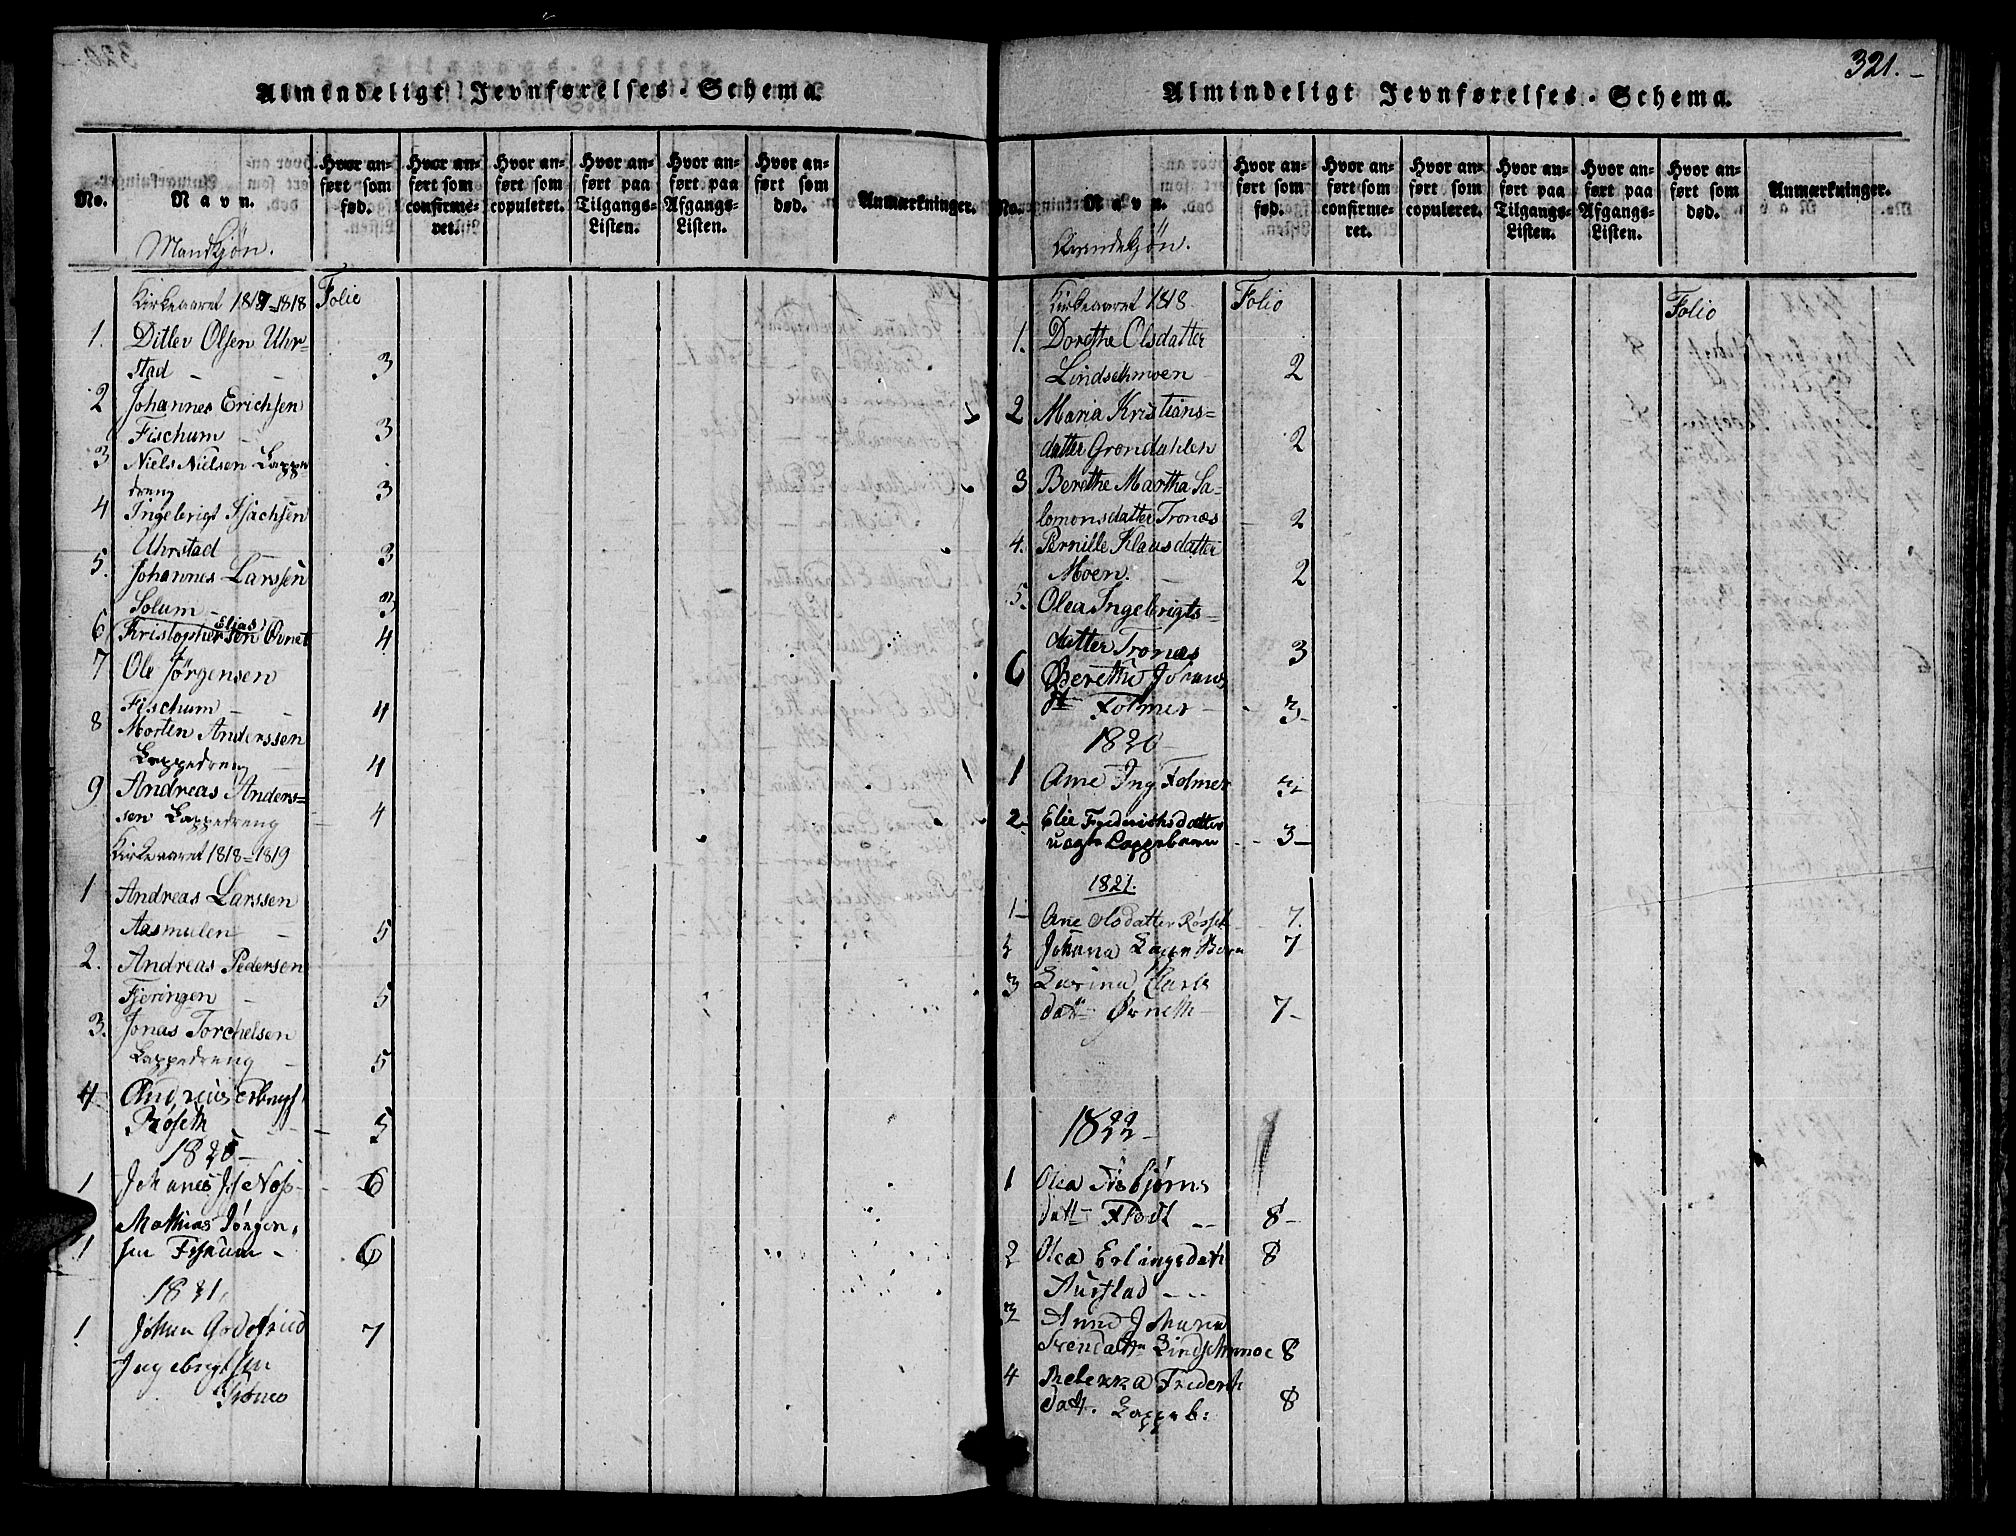 Almindeligt Jevnførelses-Schema.
No.
Navn.
Hvor an-
ført som
fød.
Hvor an-
ført som
confirme-
ret.
Hvor an-
ført som
copuleret.
Hvor an-
ført paa
Tilgangs-
Listen.
Hvor an-
ført paa
Afgangs-
Listen.
Hvor an-
ført som
død.
Anmærkninger.
Mandkjøn.
Kirkeaaret 1817-1818 Folio
1. Ditlev Olsen Uhr-
stad - - 3
2 Johannes Erichsen
Fischum - 3
3 Niels Nielsen Lappe
dreng 3
4 Ingebrigt Isachsen
Uhrstad - 3
5. Johannes Larssen
Solum - 3
Elias
6 Kristophersen Øvnet 4
7 Ole Jørgensen
Fischum - - 4
8 Morten Anderssen
Lappedreng - 4
9 Andreas Anders=
sen Lappedreng - 4
Kirkeaaret 1818=1819
1 Andreas Larssen
Aasmulen - 5
2. Andreas Pedersen
Fjeringen - 5
3. Jonas Torchelsen
Lappedreng - 5
4. Andreas
Røseth - 5
1820-
1 Johanes - 6
Mathias Jørgen,
1 sen Fiskum - 6
1821,
1 Johan Godefried 7
Ingebrigtsen
Trones
321.-
Almindeligt Jevnførelses-Schema.
No.
Navn.
Hvor an-
ført som
fød.
Hvor an-
ført som
confirme-
ret.
Hvor an-
ført som
copuleret.
Hvor an-
ført paa
Tilgangs-
Listen.
Hvor an-
ført paa
Afgangs-
Listen.
Hvor an-
ført som
død.
Anmærkninger.
Kvindekjøn.
Kirkeaaret 1818 Folio Folio
1. Dorethe Olsdatter
Lindsethmoen - 2
2 Maria Kristians=
datter Grøndahlen 2
3 Berethe Martha Sa=
lomonsdatter Tronæs - 2
4. Pernille Klausdatter
Moen. - 2
5. Olea Ingebrigts=
datter Tronæs 3
6 Berethe
Folmer - 3-
1820-
1 Ane Ing Folmer 3-
2- Elie Frederichsdatter
uægte Lappebarn - 3-
1821.
1- Ane Olsdatter Røsset 7.
2 Johanna Lappe Barn 7-
3
datt Øvneth - 7-
1822-
1 Olea Esbjørns
datt - - 8-
2 Olea Erlingsdatt 8
Aurstad - - -
3 Anne Johanna
Lindsethmoe 8
4 Rebekka Frederik
datt. Lappeb: 8